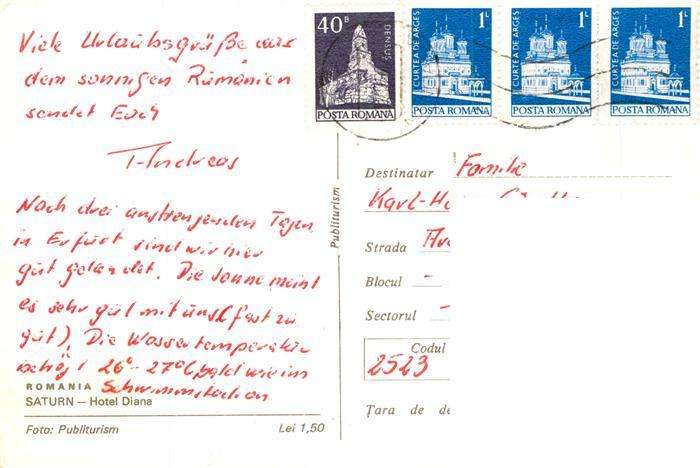 Viele Urlaubsgrüße aus
dem sonnigen Rumänien
sendet Euch
T. Andreas
Nach drei anstrengenden Tagen
in Erfurt sind wir hier
gut gelandet. Die Sonne meint
es sehr gut mit uns (fast zu
gut). Die Wassertemperatur
beträgt 26°-27°C, bald wie im
Schwimmstadion
ROMANIA
SATURN — Hotel Diana
Foto: Publiturism
Lei 1,50
Publiturism
40 B
DENSUȘ
POSTA ROMANA
1 L
CURTEA DE ARGEȘ
POSTA ROMANA
1 L
CURTEA DE ARGEȘ
POSTA ROMANA
1 L
CURTEA DE ARGEȘ
POSTA ROMANA
Destinatar Familie
Karl-He
Strada
Blocul -
Sectorul -
Codul
2523
Țara de de